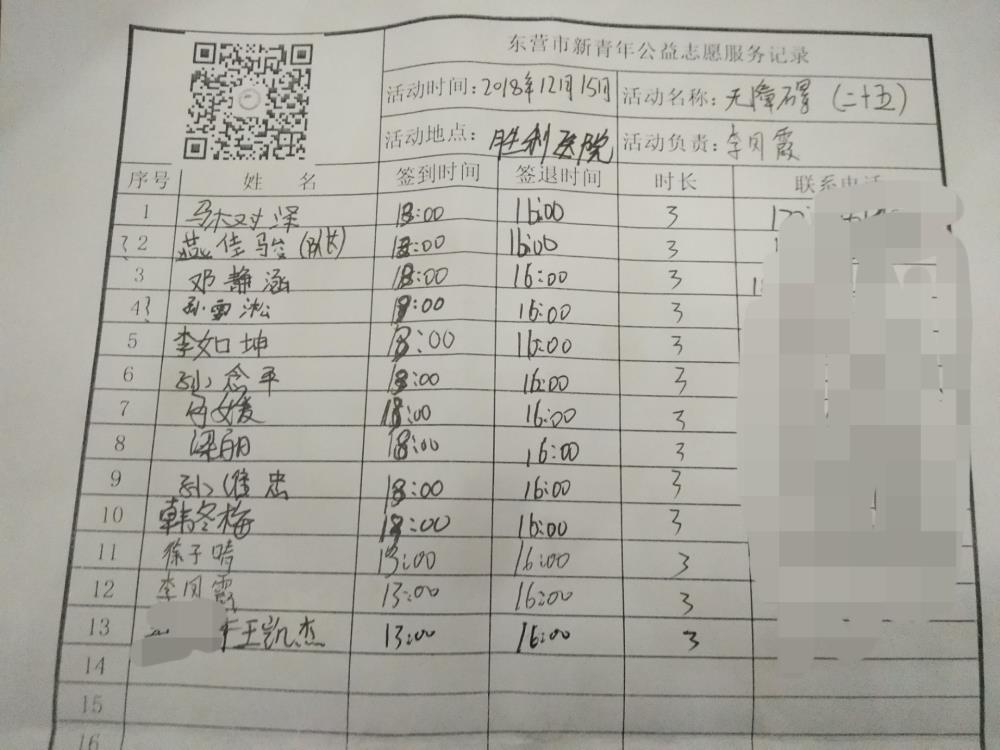 东营市新青年公益志愿服务记录
活动时间:2018年12月15日 活动名称:无障碍(二十五)
活动地点:胜利医院 活动负责:李凤霞
序号 姓名 签到时间 签退时间 时长 联系电话
1 13:00 16:00 3
2 燕佳骏(队长) 13:00 16:00 3
3 邓静涵 13:00 16:00 3
4 孙雪淞 13:00 16:00 3
5 李如坤 13:00 16:00 3
6 孙念平 13:00 16:00 3
7 13:00 16:00 3
8 梁丽 13:00 16:00 3
9 孙维忠 13:00 16:00 3
10 韩冬梅 13:00 16:00 3
11 徐子晴 13:00 16:00 3
12 李凤霞 13:00 16:00 3
13 王凯杰 13:00 16:00 3
14
15
16